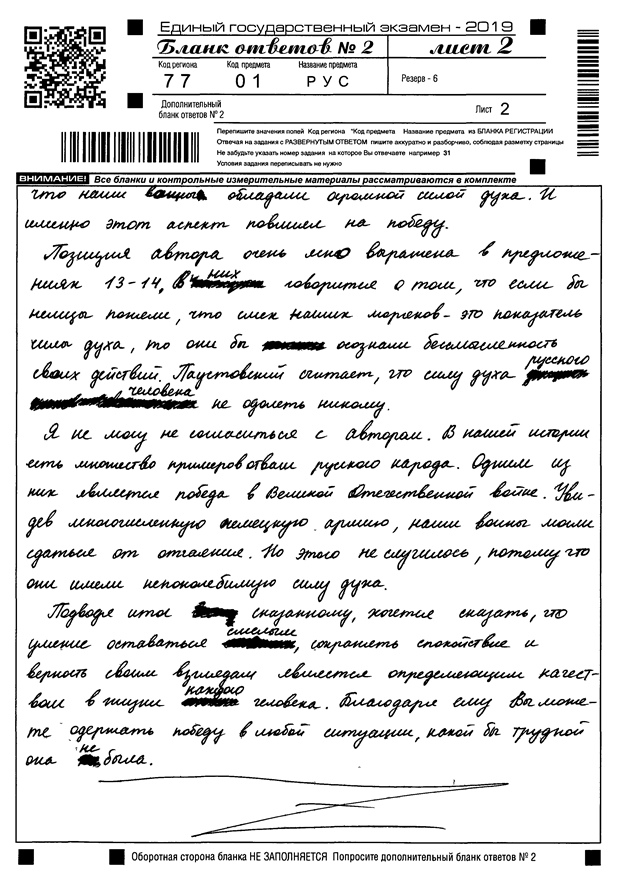 Единый государственный экзамен - 2019
Бланк ответов № 2
лист 2
Код региона
Код предмета
Название предмета
77
01
РУС
Резерв - 6
Дополнительный
бланк ответов № 2
Лист 2
Перепишите значения полей Код региона "Код предмета Название предмета из БЛАНКА РЕГИСТРАЦИИ
Отвечая на задания с РАЗВЕРНУТЫМ ОТВЕТОМ пишите аккуратно и разборчиво, соблюдая разметку страницы
Не забудьте указать номер задания на которое Вы отвечаете например 31
Условия задания переписывать не нужно
ВНИМАНИЕ! Все бланки и контрольные измерительные материалы рассматриваются в комплекте
что наши обладали огромной силой духа. И
именно этот аспект повлиял на победу.
Позиция автора очень ясно выражена в предложе-
ниях 13-14. В них говорится о том, что если бы
немцы поняли, что смех наших моряков - это показатель
силы духа, то они бы осознали бессмысленность
своих действий. Паустовский считает, что силу духа русского
человека не одолеть никому.
Я не могу не согласиться с автором. В нашей истории
есть множество примеров отваги русского народа. Одним из
них является победа в Великой Отечественной войне. Уви-
дев многочисленную немецкую армию, наши воины могли
сдаться от отчаяния. Но этого не случилось, потому что
они имели непоколебимую силу духа.
Подводя итог сказанному, хочется сказать, что
умение оставаться смелым, сохранять спокойствие и
верность своим взглядам является определяющим качест-
вом в жизни каждого человека. Благодаря ему Вы може-
те одержать победу в любой ситуации, какой бы трудной
она не была.
Оборотная сторона бланка НЕ ЗАПОЛНЯЕТСЯ Попросите дополнительный бланк ответов № 2